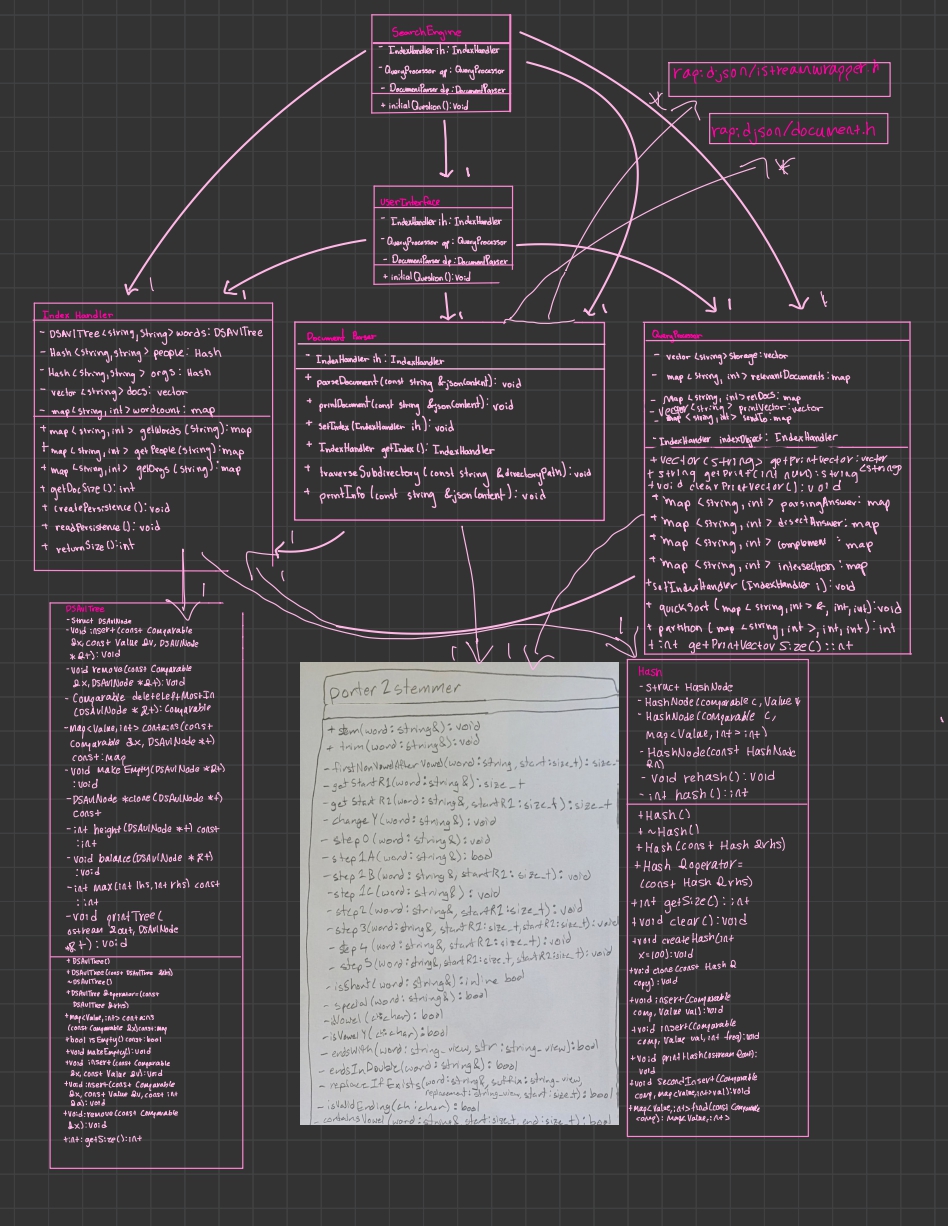 SearchEngine
- IndexHandler ih: IndexHandler
- QueryProcessor qp: QueryProcessor
- DocumentParser dp: DocumentParser
+ initialQuestion(): void
rapidjson/istreamwrapper.h
*
rapidjson/document.h
*
1
UserInterface
- IndexHandler ih: IndexHandler
- QueryProcessor qp: QueryProcessor
- DocumentParser dp: DocumentParser
+ initialQuestion(): void
1
1
1
1
1
1
Index Handler
- DSAvlTree<string,string> words: DSAvlTree
- Hash<string,string> people: Hash
- Hash<string,string> orgs: Hash
- vector<string> docs: vector
- map<string,int> wordcount: map
+ map<string,int> getWords(string): map
+ map<string,int> getPeople(string): map
+ map<string,int> getOrgs(string): map
+ getDocSize(): int
+ createPersistence(): void
+ readPersistence(): void
+ returnSize(): int
Document Parser
- IndexHandler ih: IndexHandler
+ parseDocument(const string &jsonContent): void
+ printDocument(const string &jsonContent): void
+ setIndex(IndexHandler ih): void
+ IndexHandler getIndex(): IndexHandler
+ traverseSubdirectory(const string &directoryPath): void
+ printInfo(const string &jsonContent): void
QueryProcessor
- vector<string> storage: vector
- map<string, int> relevantDocuments: map
- Map<string, int> relDocs: map
- Vector<string> printVector: vector
- map<string, int> sendTo: map
- IndexHandler indexObject: IndexHandler
+ vector<string> getPrintVector: vector<string>
+ string getPrint(int num): string
+ void clearPrintVector(): void
+ map<string, int> parsingAnswer: map
+ map<string, int> disectAnswer: map
+ map<string, int> complement: map
+ map<string, int> intersection: map
+ setIndexHandler(IndexHandler i): void
+ quickSort(map<string, int> &, int, int): void
+ partition(map<string, int>, int, int): int
+ int getPrintVectorSize()::int
1
1
1
1
1
1
DSAvlTree
- Struct DSAvlNode
- Void insert(const Comparable
&x, const Value &v, DSAvlNode
*&t): Void
- Void remove(const Comparable
&x, DSAvlNode *&t): Void
- Comparable deleteLeftMostIn
(DSAvlNode *&t): Comparable
- Map<Value,int> contains(const
Comparable &x, DSAvlNode *t)
const: map
- Void makeEmpty(DSAvlNode *&t)
: Void
- DSAvlNode *clone(DSAvlNode *t)
const
- int height(DSAvlNode *t) const
: int
- Void balance(DSAvlNode *&t)
: Void
- int max(int lhs, int rhs) const
: int
- Void printTree(
ostream &out, DSAvlNode
*&t): Void
+ DSAvlTree()
+ DSAvlTree(const DSAvlTree &rhs)
~DSAvlTree()
+ DSAvlTree &operator=(const
DSAvlTree &rhs)
+ map<Value,int> contains
(const Comparable &x) const: map
+ bool isEmpty() const: bool
+ Void makeEmpty(): Void
+ Void insert(const Comparable
&x, const Value &v): Void
+ Void insert(const Comparable
&x, const Value &v, const int
&a): Void
+ Void: remove(const Comparable
&x): Void
+ int: getSize(): int
porter2stemmer
+ stem(word: string&): void
+ trim(word: string&): void
- firstNonVowelAfterVowel(word: string, start: size_t): size_
- getStartR1(word: string&): size_t
- getStartR2(word: string&, startR1: size_t): size_t
- changeY(word: string&): void
- step0(word: string&): void
- step1A(word: string&): bool
- step1B(word: string&, startR1: size_t): void
- step1C(word: string&): void
- step2(word: string&, startR1: size_t): void
- step3(word: string&, startR1: size_t, startR2: size_t): void
- step4(word: string&, startR2: size_t): void
- step5(word: string&, startR1: size_t, startR2: size_t): void
- isShort(word: string&): inline bool
- special(word: string&): bool
- isVowel(ch: char): bool
- isVowelY(ch: char): bool
- endsWith(word: string_view, str: string_view): bool
- endsInDouble(word: string&): bool
- replaceIfExists(word: string&, suffix: string_view,
replacement: string_view, start: size_t): bool
- isValidEnding(ch: char): bool
- containsVowel(word: string& start: size_t, end: size_t): bool
Hash
- Struct HashNode
- HashNode(Comparable c, Value v
- HashNode(Comparable c,
Map<Value, int> int)
- HashNode(const HashNode
&n)
- Void rehash(): Void
- int hash(): int
+ Hash()
+ ~Hash()
+ Hash(const Hash &rhs)
+ Hash &operator=
(const Hash &rhs)
+ int getSize(): int
+ Void clear(): Void
+ Void createHash(int
x=100): Void
+ Void clone(const Hash &
copy): Void
+ Void insert(Comparable
comp, Value val): Void
+ Void insert(Comparable
comp, Value val, int freq): Void
+ Void printHash(ostream &out):
Void
+ Void SecondInsert(Comparable
comp, map<Value,int>val): Void
+ Map<Value, int> find(const Comparable
comp): Map<Value, int>